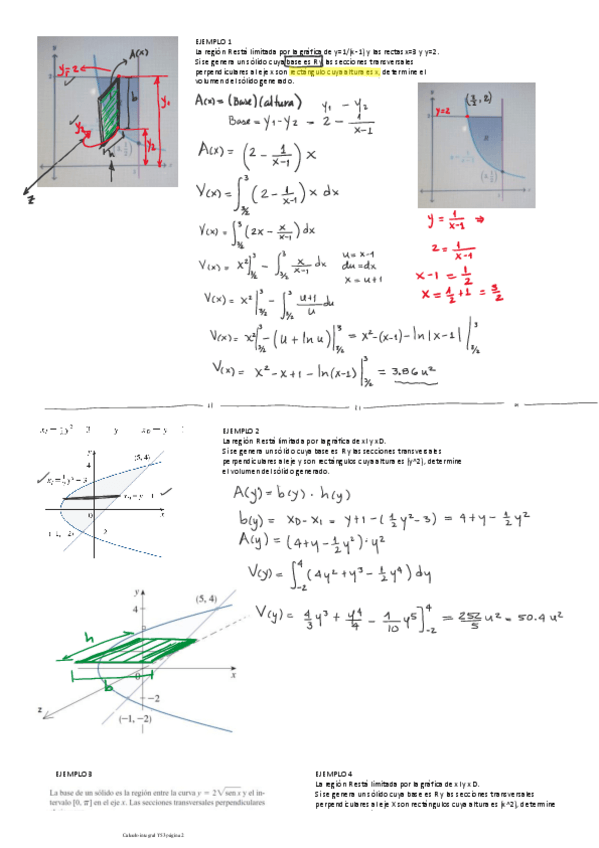 EJEMPLO 1
La región R está limitada por la gráfica de y=1/(x-1) y las rectas x=3 y y=2.
Si se genera un sólido cuya base es R y las secciones transversales
perpendiculares al eje x son rectángulo cuya altura es x, determine el
volumen del sólido generado.
A(x)
y₁=2
b
y₁
y₂
y₂
h
z
A(x) = (Base)(altura)
y₁ - y₂
Base = y₁-y₂ = 2 - 1/(x-1)
A(x) = (2 - 1/(x-1)) x
V(x) = ∫_{3/2}^{3} (2 - 1/(x-1)) x dx
V(x) = ∫_{3/2}^{3} (2x - x/(x-1)) dx
V(x) = x²|_{3/2}^{3} - ∫_{3/2}^{3} x/(x-1) dx
u = x-1
du = dx
x = u+1
V(x) = x²|_{3/2}^{3} - ∫_{3/2}^{3} (u+1)/u du
V(x) = x²|_{3/2}^{3} - (u + ln u)|_{3/2}^{3} = x²-(x-1)-ln|x-1| |_{3/2}^{3}
V(x) = x²-x+1-ln(x-1)|_{3/2}^{3} = 3.86 u²
y=2
(3/2, 2)
y = 1/(x-1) ⇒
2 = 1/(x-1)
x-1 = 1/2
x = 1/2+1 = 3/2
EJEMPLO 2
La región R está limitada por la gráfica de xI y x D.
Si se genera un sólido cuya base es R y las secciones transversales
perpendiculares al eje y son rectángulos cuya altura es (y^2), determine
el volumen del sólido generado.
y
(5, 4)
4
0
x
A(y) = b(y) · h(y)
b(y) = xD - xI = y+1-(1/2 y²-3) = 4+y-1/2 y²
A(y) = (4+y-1/2 y²)·y²
V(y) = ∫_{-2}^{4} (4y²+y³-1/2 y⁴) dy
V(y) = 4/3 y³ + y⁴/4 - 1/10 y⁵]_{-2}^{4} = 252/5 u² = 50.4 u²
y
4
(5, 4)
h
0
x
b
-2
z
(-1, -2)
EJEMPLO 3
La base de un sólido es la región entre la curva y = 2√sen x y el in-
tervalo [0, π] en el eje x. Las secciones transversales perpendiculares
EJEMPLO 4
La región R está limitada por la gráfica de xI y x D.
Si se genera un sólido cuya base es R y las secciones transversales
perpendiculares al eje X son rectángulos cuya altura es (x^2), determine
Calculo integral Y53 página 2